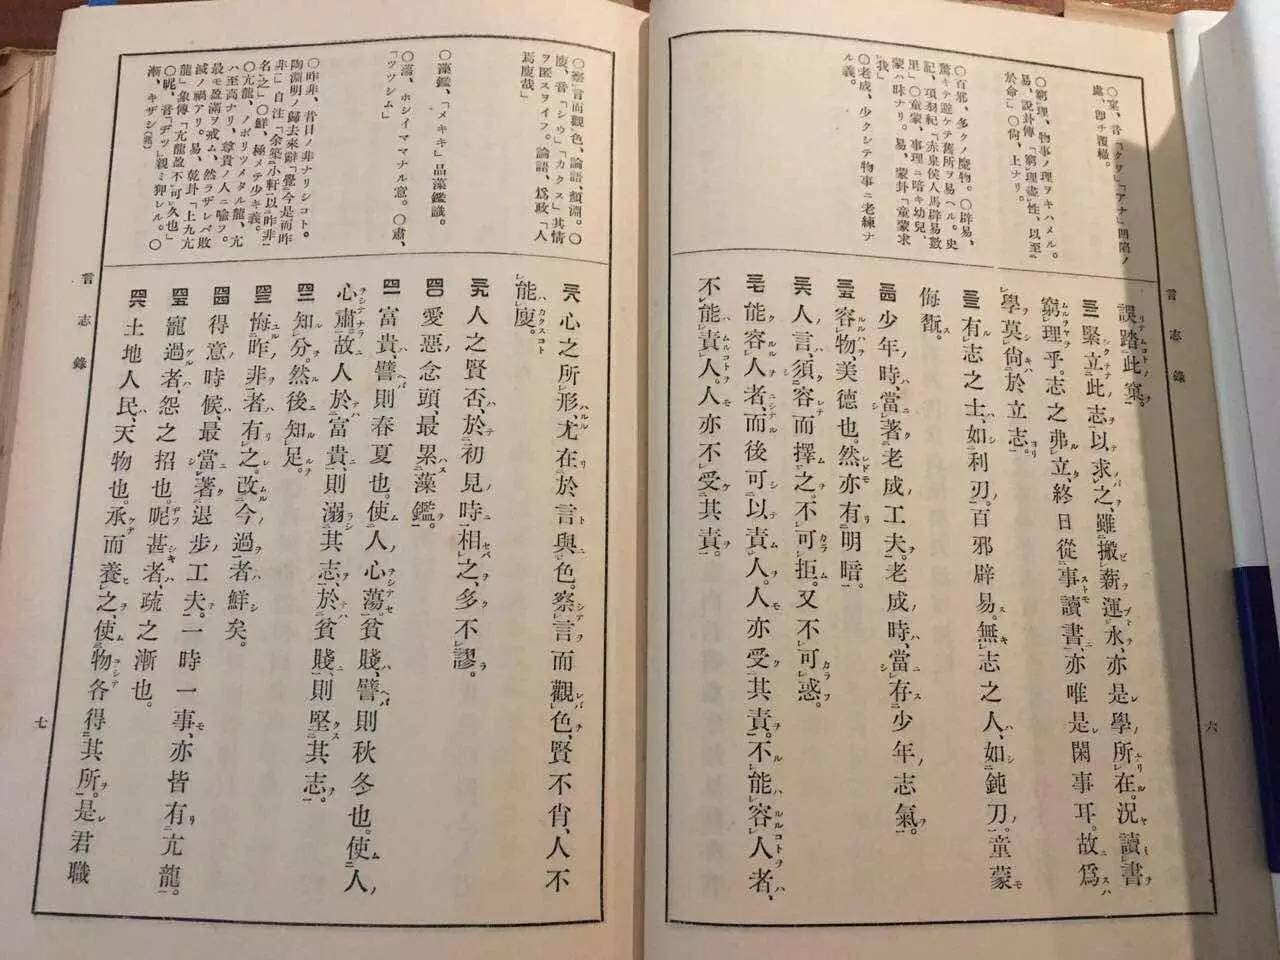 言志錄
六
○窠、音「クワ」「アナ」凹陷ノ
處、卽チ覆轍。
○窮理、物事ノ理ヲキハメル。
易、說卦傳「窮理盡性、以至
於命」○尙、上ナリ。
○百邪、多クノ魔物。○辟易、
驚キテ避ケテ舊所ヲ易ヘル。史
記、項羽紀「赤泉侯人馬辟易數
里」○童蒙、事理ニ暗キ幼兒、
蒙ハ昧ナリ。易、蒙卦「童蒙求
我」
○老成、少クシテ物事ニ老練ナ
ル義。
誤踏此窠。
三二 緊立此志以求之、雖搬薪運水、亦是學所在。況讀書
窮理乎。志之弗立、終日從事讀書、亦唯是閑事耳。故爲
學莫尙於立志。
三三 有志之士、如利刃。百邪辟易。無志之人、如鈍刀。童蒙
侮翫。
三四 少年時、當著老成工夫。老成時、當存少年志氣。
三五 容物美德也。然亦有明暗。
三六 人言、須容而擇之。不可拒。又不可惑。
三七 能容人者、而後可以責人。人亦受其責。不能容人者、
不能責人。人亦不受其責。
○察言而觀色、論語、顏淵。○
廋、音「シウ」「カクス」其情
ヲ匿スヲイフ。論語、爲政「人
焉廋哉」
○藻鑑、「メキキ」品藻鑑識。
○蕩、ホシイママナル意。○肅、
「ツツシム」
○昨非、昔日ノ非ナリシコト。
陶淵明ノ歸去來辭「覺今是而昨
非」自注「余築小軒以昨非
名之」○鮮、極メテ少キ義。
○亢龍、ノボリツメタル龍、亢
ハ至高ナリ、尊貴ノ人ニ喩フ。
最モ盈滿ヲ戒ム、然ラザレバ敗
滅ノ禍アリ。易、乾卦「上九亢
龍」象傳「亢龍盈不可久也」
○昵、音「ヂツ」親ミ狎レル。○
漸、キザシ(兆)
三八 心之所形、尤在於言與色。察言而觀色、賢不肖、人不
能廋。
三九 人之賢否、於初見時相之、多不謬。
四〇 愛惡念頭、最累藻鑑。
四一 富貴、譬則春夏也。使人心蕩。貧賤、譬則秋冬也。使人
心肅。故人於富貴、則溺其志、於貧賤、則堅其志。
四二 知分。然後知足。
四三 悔昨非者有之。改今過者鮮矣。
四四 得意時候、最當著退步工夫。一時一事、亦皆有亢龍。
四五 寵過者、怨之招也。昵甚者、疏之漸也。
四六 土地人民、天物也。承而養之、使物各得其所。是君職
言志錄
七